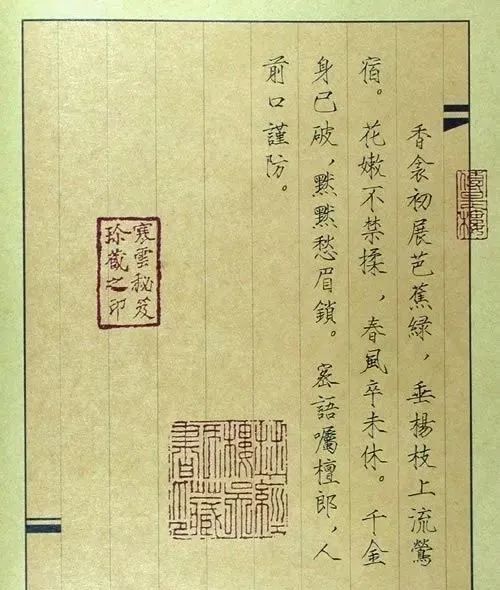 香衾初展芭蕉綠，垂楊枝上流鶯
宿。花嫩不禁揉，春風卒未休。千金
身已破，黙黙愁眉鎖。宻語囑檀郎，人
前口謹防。
寒雲秘笈
珍藏之印